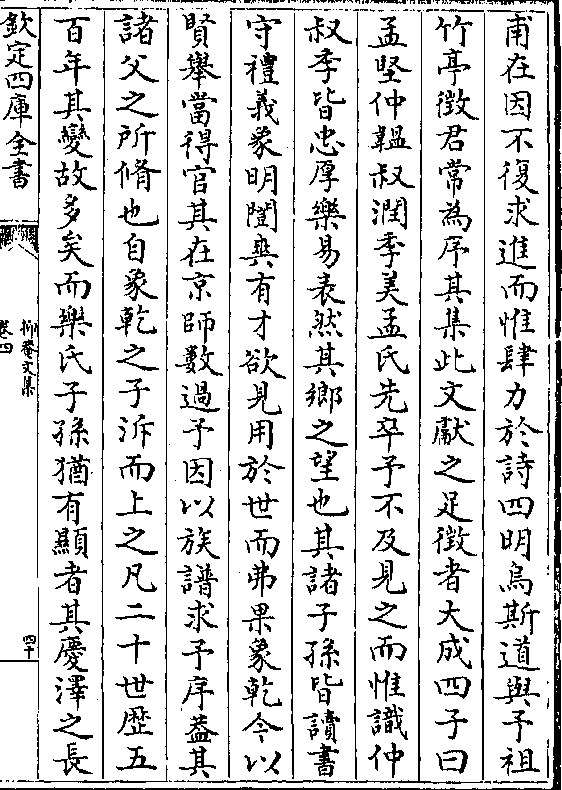 甫在因不復求進而惟肆力於詩四明烏斯道與予祖
竹亭徴君常為序其集此文獻之足徴者大成四子曰
孟堅仲韞叔潤季美孟氏先卒予不及見之而惟識仲
叔季皆忠厚樂易表然其鄉之望也其諸子孫皆讀書
守禮義象明誾與有才欲見用於世而弗果象乾今以
賢舉當得官其在京師數過予因以族譜求予序葢其
諸父之所脩也自象乾之子泝而上之凡二十世歴五
百年其變故多矣而樂氏子孫猶有顯者其慶澤之長
欽定四庫全書
抑菴文集
卷四
四十